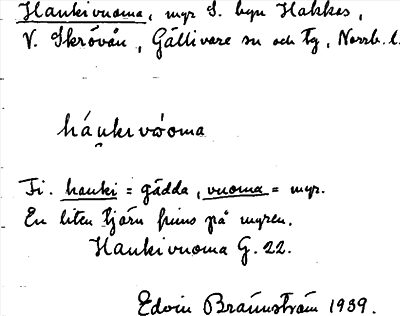 Haukivuoma, myr S. byn Hakkas,
V. Skröván, Gällivare sn och tg, Norrb. l.
háu̯kivẃoma
Fi. hauki = gädda, vuoma = myr.
En liten tjärn finns på myren.
Haukivuoma G. 22.
Edvin Brännström 1939.